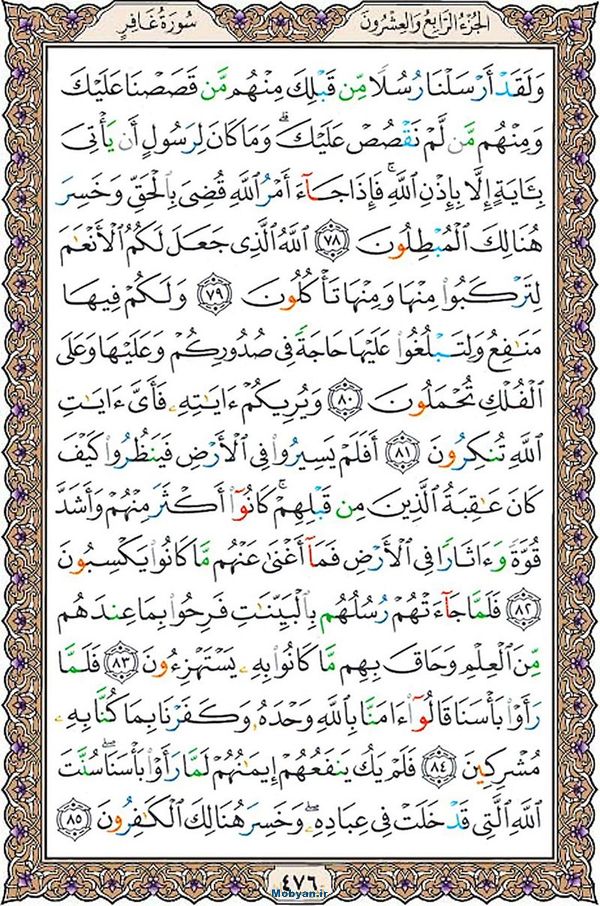 الجُزْءُ الرَّابِعُ وَالعِشْرُونَ
سُورَةُ غَافِرٍ
وَلَقَدۡ أَرۡسَلۡنَا رُسُلٗا مِّن قَبۡلِكَ مِنۡهُم مَّن قَصَصۡنَا عَلَيۡكَ
وَمِنۡهُم مَّن لَّمۡ نَقۡصُصۡ عَلَيۡكَۗ وَمَا كَانَ لِرَسُولٍ أَن يَأۡتِيَ
بِـَٔايَةٍ إِلَّا بِإِذۡنِ ٱللَّهِۚ فَإِذَا جَآءَ أَمۡرُ ٱللَّهِ قُضِيَ بِٱلۡحَقِّ وَخَسِرَ
هُنَالِكَ ٱلۡمُبۡطِلُونَ ٧٨ ٱللَّهُ ٱلَّذِي جَعَلَ لَكُمُ ٱلۡأَنۡعَٰمَ
لِتَرۡكَبُواْ مِنۡهَا وَمِنۡهَا تَأۡكُلُونَ ٧٩ وَلَكُمۡ فِيهَا
مَنَٰفِعُ وَلِتَبۡلُغُواْ عَلَيۡهَا حَاجَةٗ فِي صُدُورِكُمۡ وَعَلَيۡهَا وَعَلَى
ٱلۡفُلۡكِ تُحۡمَلُونَ ٨٠ وَيُرِيكُمۡ ءَايَٰتِهِۦ فَأَيَّ ءَايَٰتِ
ٱللَّهِ تُنكِرُونَ ٨١ أَفَلَمۡ يَسِيرُواْ فِي ٱلۡأَرۡضِ فَيَنظُرُواْ كَيۡفَ
كَانَ عَٰقِبَةُ ٱلَّذِينَ مِن قَبۡلِهِمۡۚ كَانُوٓاْ أَكۡثَرَ مِنۡهُمۡ وَأَشَدَّ
قُوَّةٗ وَءَاثَارٗا فِي ٱلۡأَرۡضِ فَمَآ أَغۡنَىٰ عَنۡهُم مَّا كَانُواْ يَكۡسِبُونَ
٨٢ فَلَمَّا جَآءَتۡهُمۡ رُسُلُهُم بِٱلۡبَيِّنَٰتِ فَرِحُواْ بِمَا عِندَهُم
مِّنَ ٱلۡعِلۡمِ وَحَاقَ بِهِم مَّا كَانُواْ بِهِۦ يَسۡتَهۡزِءُونَ ٨٣ فَلَمَّا
رَأَوۡاْ بَأۡسَنَا قَالُوٓاْ ءَامَنَّا بِٱللَّهِ وَحۡدَهُۥ وَكَفَرۡنَا بِمَا كُنَّا بِهِۦ
مُشۡرِكِينَ ٨٤ فَلَمۡ يَكُ يَنفَعُهُمۡ إِيمَٰنُهُمۡ لَمَّا رَأَوۡاْ بَأۡسَنَاۖ سُنَّتَ
ٱللَّهِ ٱلَّتِي قَدۡ خَلَتۡ فِي عِبَادِهِۦۖ وَخَسِرَ هُنَالِكَ ٱلۡكَٰفِرُونَ ٨٥
٤٧٦
Mobyan.ir